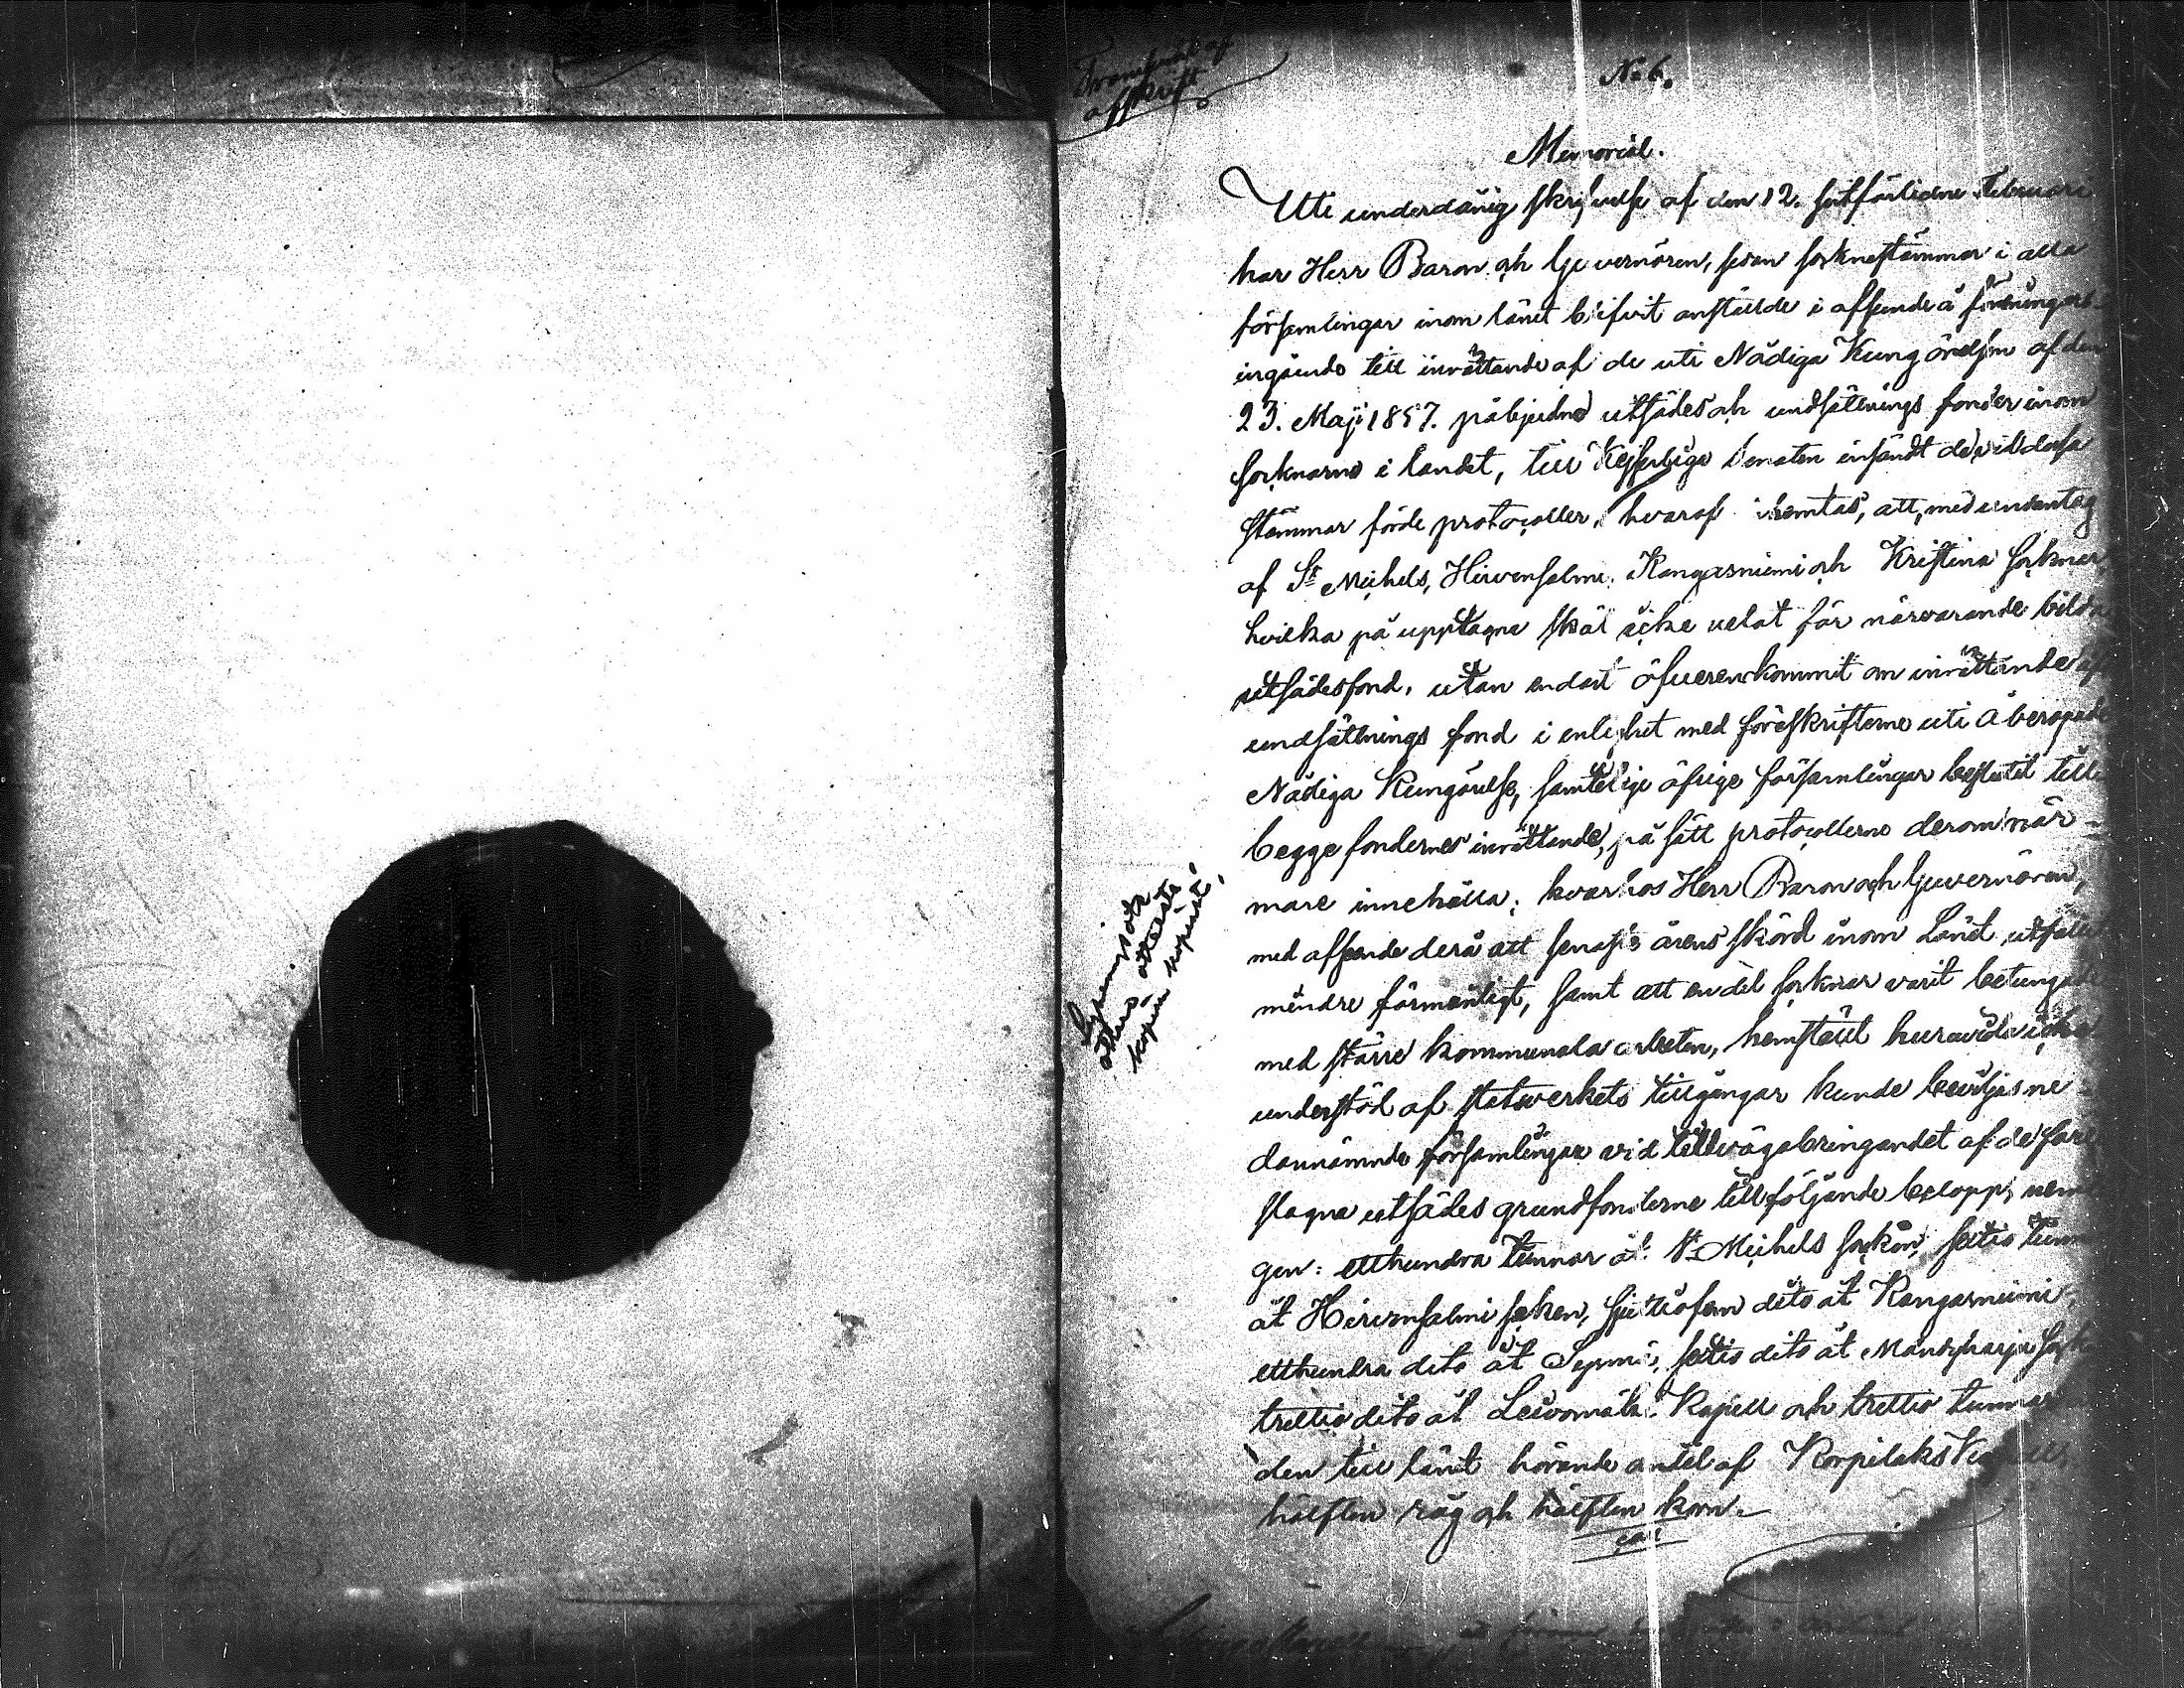 afskrift
No 6.
Memorial.
Uti underdånig skrifvelse af den 12. sistförlidne Februari
har Herr Baron och Guvernören, sedan socknestämmor i alla
församlingar inom länet blifvit anstälde i afseende å
ingående till inrättande af de uti Nådiga Kungörelsen af den
23. Maji 1857. påbjudne utsädes och undsättnings fonder inom
socknarne i landet, till Kejserlige Senaten insändt de vid dessa
stämmor förde protocoller, hvaraf inhemtas, att, med undantag
af St Michels, Hirvensalmi, Kangasniemi och Kristina socknar,
hvilka på upptagna skäl icke velat för närvarande bilda
utsädesfond, utan endast öfverenskommit om inrättande af
undsättnings fond i enlighet med föreskrifterne uti åberopade
Nådiga Kungörelse, samtelige öfrige församlingar beslutit
begge fondernes inrättande, på sätt protocollerne derom när-
mare innehålla; hvarhos Herr Baron och Guvernören,
med afseende derå att senaste årens skörd inom Länet utfallit
mindre förmånligt, samt att en del socknar varit betungade
med större kommunala arbeten, hemstält huruvida icke
understöd af statsverkets tillgångar kunde beviljas ne-
dannämnde församlingar vid tillvägabringandet af de före
slagna utsädes grundfonderne till följande belopp,
gen: etthundra tunnor åt St Michels socken, sextio
åt Hirvensalmi socken, sjutiofem dito åt Kangasniemi,
etthundra dito åt Jepmä, sextio dito åt Mäntyharju
trettio dito åt Leivomäki Kapell och trettio tunnor
den till länet hörande antel af Korpilaks Kapell,
hälften råg och hälften korn.